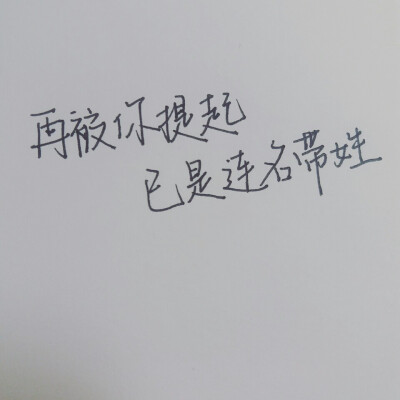 再被你提起
已是连名带姓